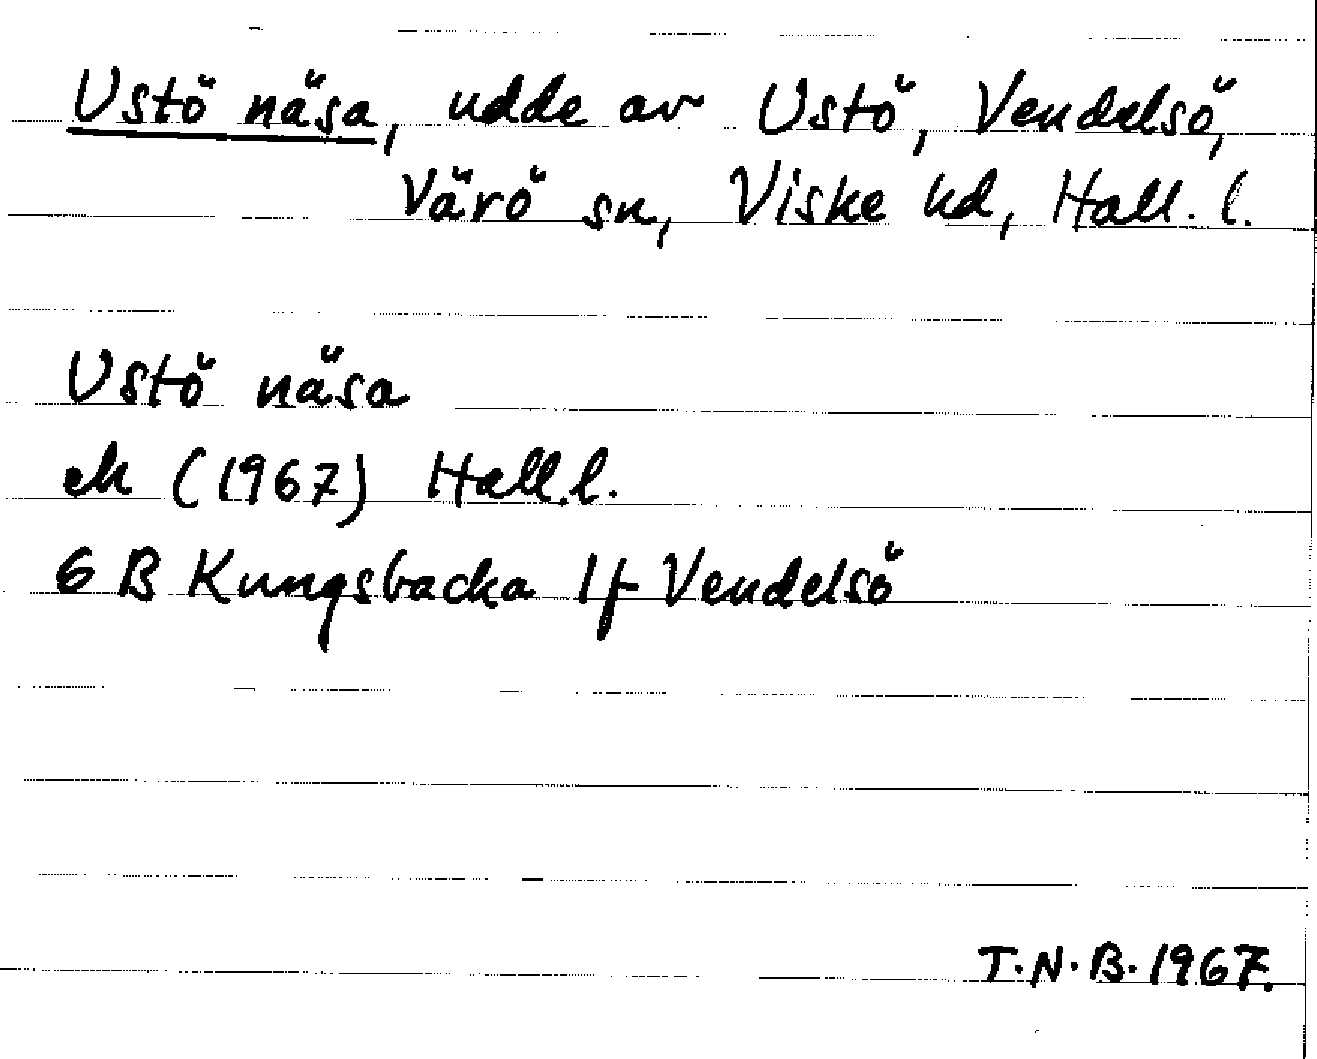 Ustö näsa, udde av Ustö, Vendelsö,
Värö sn, Viske hd, Hall. l.
Ustö näsa
ek (1967) Hall.l.
6 B Kungsbacka 1f Vendelsö
T.N.B. 1967.